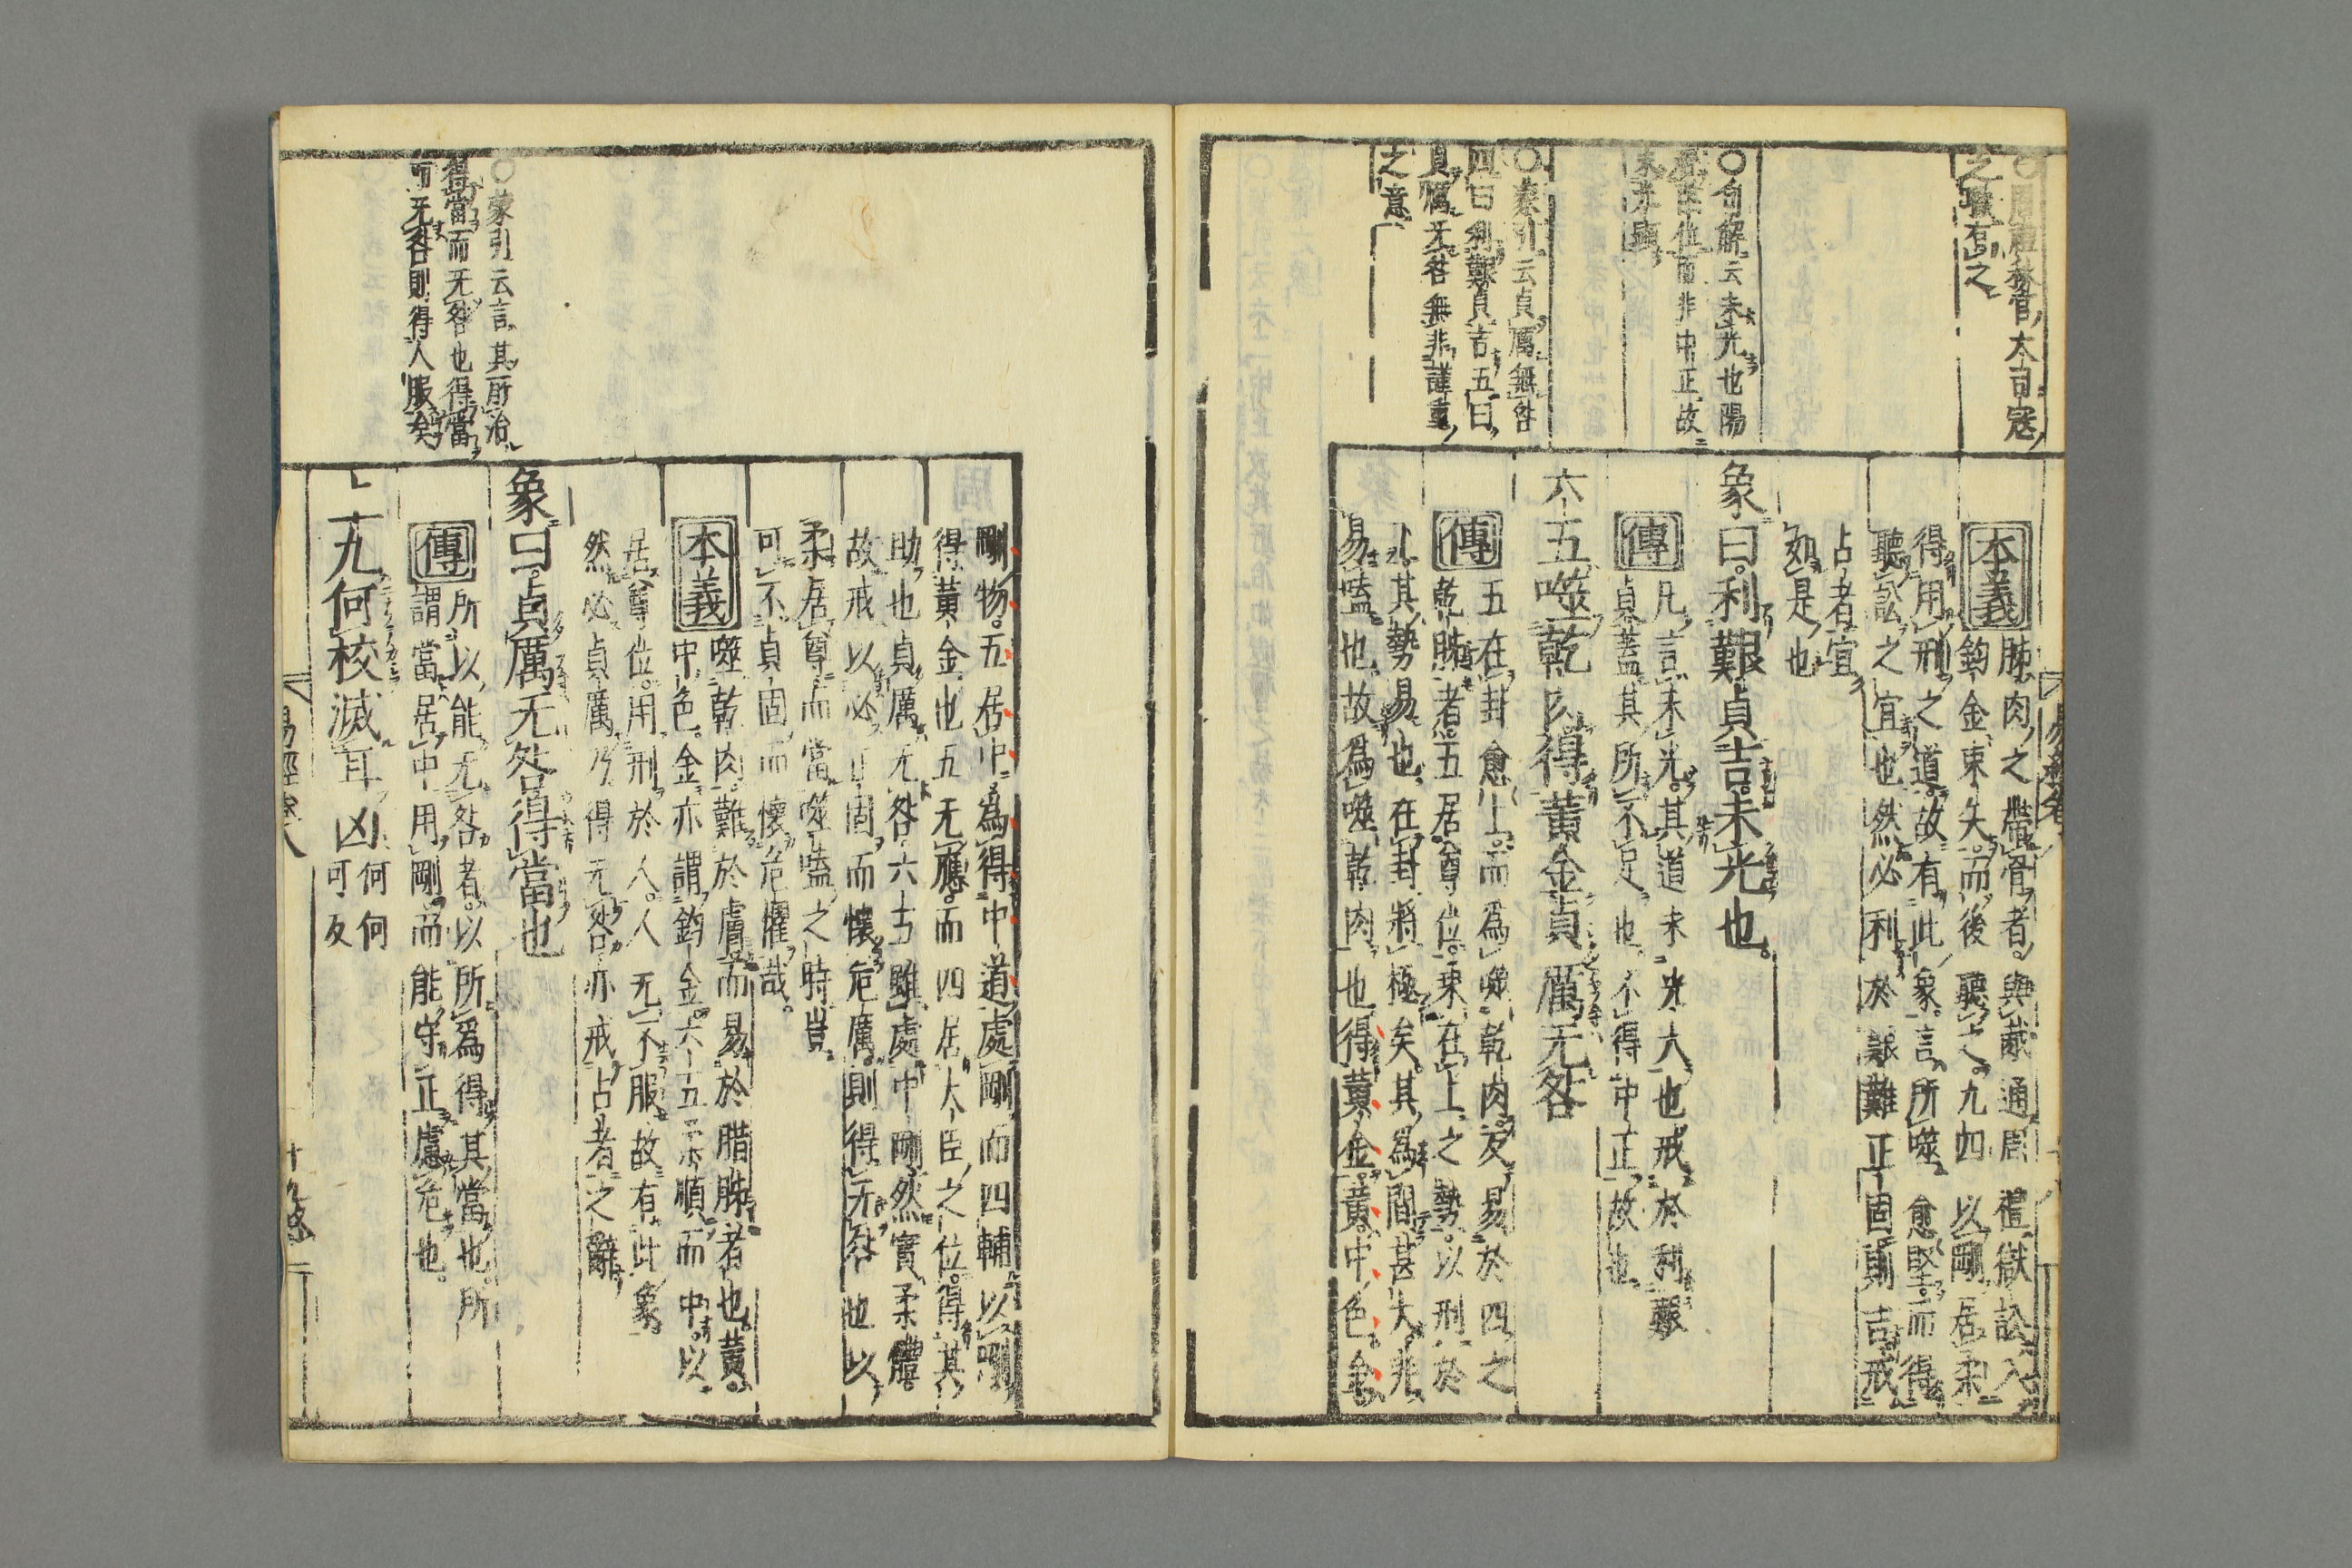 ○周禮秋官大司寇
之職有之
○句解云未光也陽
居陰位而非中正故
未光聽
○蒙引云貞厲無咎
四曰利艱貞吉五曰
貞厲无咎無非謹重
之意
本義
胏肉之帶骨者與胾通周禮獄訟入
鈞金束矢而後聽之九四以剛居柔
得用刑之道故有此象言所噬愈堅而得
聽訟之宜也然必利於艱難正固則吉戒
占者宜
如是也
象曰利艱貞吉未光也
傳
凡言未光其道未光大也戒於利艱
貞蓋其所不足也不得中正故也
六五噬乾肉得黃金貞厲无咎
傳
五在卦愈上而為噬乾肉反易於四之
乾胏者五居尊位乘在上之勢以刑於
下其勢易也在卦將極矣其為間甚大非
易嗑也故為噬乾肉也得黃金黃中色金
剛物五居中為得中道處剛而四輔以剛
得黃金也五无應而四居大臣之位得其
助也貞厲无咎六五雖處中剛然實柔體
故戒以必正固而懷危厲則得无咎也以
柔居尊而當噬嗑之時豈
可不貞固而懷危懼哉
本義
噬乾肉難於膚而易於腊胏者也黃
中色金亦謂鈞金六五柔順而中以
居尊位用刑於人人无不服故有此象
然必貞厲乃得无咎亦戒占者之辭
○蒙引云言其所治
得當而无咎也得當
而无咎則得人服矣
象曰貞厲无咎得當也
傳
所以能无咎者以所為得其當也所
謂當居中用剛而能守正慮危也
上九何校滅耳凶何何可反
易經卷八